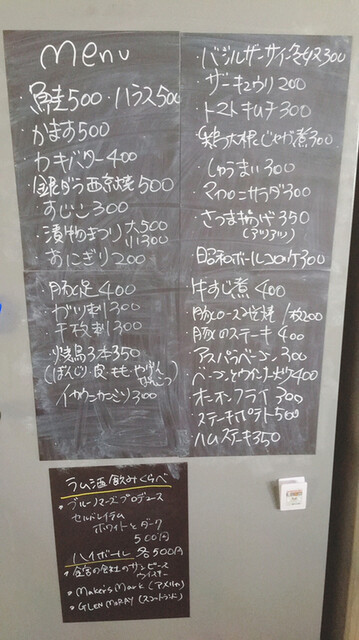 Menu
・鮭500 ・ハラス500
・かます500
・カキバター400
・銀ダラ西京焼500
・すじこ300
・漬物まつり 大500
小300
・おにぎり200
・豚足400
・ガツ刺300
・コブクロ刺300
・焼鳥3本350
(ぼんじり・皮・もも・やげんなんこつ)
・イカウニサーミソ300
・バジルザーサイ
300
・ザーキュウリ200
・トマトキムチ300
・鶏大根じゃが煮300
・しゅうまい300
・マカロニサラダ300
・さつま揚げ350
(アツアツ)
・昭和ボールコロッケ300
・牛すじ煮400
・豚ロースみそ焼 1枚200
・豚のステーキ400
・アスパラベーコン300
・ベーコンとウインナー
400
・オニオンフライ300
・ステーキポテト500
・ハムステーキ350
ラム酒飲みくらべ
・ブルーノマーズプロデュース
セルバレイラム
ホワイトとダーク
500円
ハイボール 各500円
・
ウイスキー
・Maker's Mark (アメリカ)
・GLEN MORAY (スコットランド)